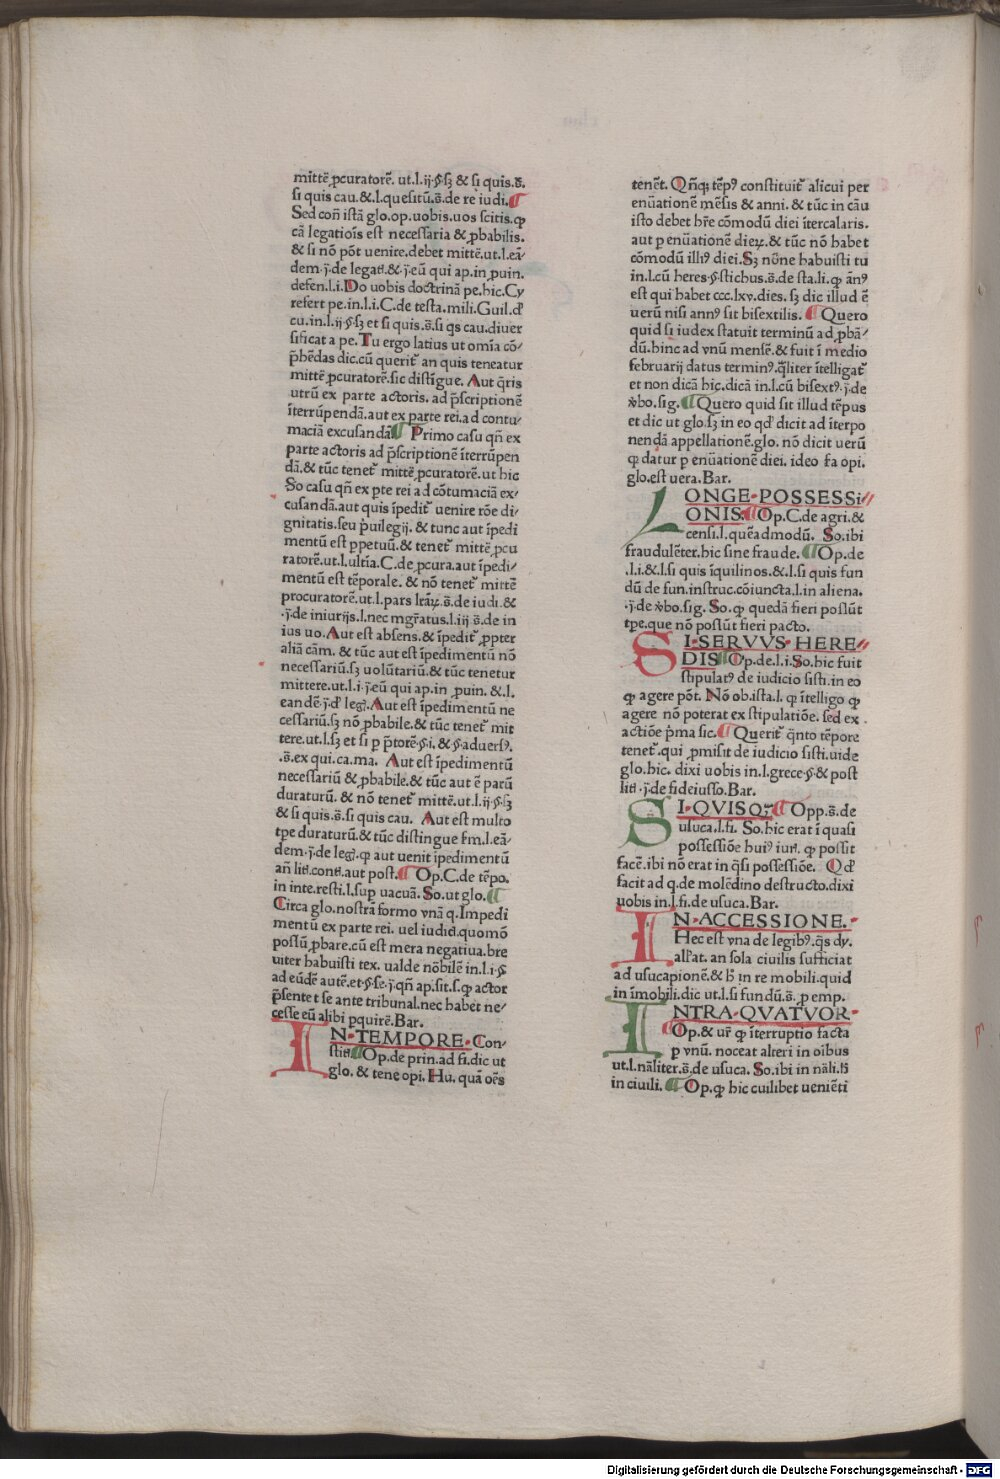 mittẽ ꝓcuratorẽ. ut.l.ij.§.sꝫ & si quis.s̄.
si quis cau.&.l.quesitũ.s̄.de re iudi.¶
Sed con̄ istã glo.op.uobis.uos scitis.ꝙ
cã legatiois est necessaria & ꝓbabilis.
& si nõ põt uenire.debet mittẽ.ut.l.eã⸗
dem.j̄.de legati.&.j̄.eũ qui ap.in ꝓuin.
defen.l.i.Do uobis doctrinã pe.hic.Cy
refert pe.in.l.i.C.de testa.mili.Guil.đ
cu.in.l.ij.§.sꝫ et si quis.s̄.si qs cau.diuer
sificat a pe.Tu ergo latius ut omĩa cõ⸗
p̄hẽdas dic.cũ querit̃ an quis teneatur
mittẽ ꝓcuratorẽ.sic distĩgue. Aut q̃ris
utrũ ex parte actoris. ad p̄scriptionẽ
ĩterrũpendã.aut ex parte rei.ad contu⸗
maciã excusandã¶ Primo casu qñ ex
parte actoris ad p̄scriptionẽ ĩterrũpen
dã.& tũc tenet̃ mittẽ ꝓcuratorẽ.ut hic
So casu qñ ex pte rei ad cõtumaciã ex⸗
cusandã.aut quis ĩpedit̃ uenire rõe di⸗
gnitatis.seu p̄uilegij. & tunc aut ĩpedi
mentũ est ꝑpetuũ.& tenet̃ mittẽ ꝓcu
ratorẽ.ut.l.ultĩa.C.de ꝓcura.aut ĩpedi⸗
mentũ est tẽporale. & nõ tenet̃ mittẽ
procuratorẽ.ut.l.pars lrãꝝ.s̄.de iudi.&
.j̄.de iniurijs.l.nec mgr̃atus.l.iij s̄.de in
ius uo.Aut est absens.& ĩpedit̃ ꝓpter
aliã cãm. & tũc aut est ĩpedimentũ nõ
necessariũ.sꝫ uolũtariũ.& tũc tenetur
mittere.ut.l.i j̄.eũ qui ap.in ꝓuin. &.l.
eandẽ.j̄.đ leg.Aut est ĩpedimentũ ne
cessariũ.sꝫ nõ ꝓbabile.& tũc tenet̃ mit
tere.ut.l.sꝫ et si p p̄torẽ.§.i.& §.aduersꝰ.
.s̄.ex qui.ca.ma. Aut est ĩpedimentũ
necessariũ & ꝓbabile.& tũc aut ẽ parũ
duraturũ. & nõ tenet̃ mittẽ.ut.l.ij.§.sꝫ
& si quis.s̄.si quis cau. Aut est multo
tpe duraturũ.& tũc distingue fm.l.eã⸗
dem.j̄.de leg.ꝙ aut uenit ipedimentũ
añ liti.conti.aut post.¶ Op.C.de tẽpo.
in inte.resti.l.suꝑ uacuã.So.ut glo.¶
Circa glo.nostrã formo vnã q.Impedi
mentũ ex parte rei. uel iudici.quomõ
possũ ꝓbare.cũ est mera negatiua.bre
uiter habuisti tex. ualde nõbilẽ in.l.i §
ad eũdẽ autẽ.et.§.se.j̄.qñ ap.sit.s.ꝙ actor
p̄sente t se ante tribunal.nec habet ne⸗
cesse eũ alibi ꝑquirẽ.Bar.
IN·TEMPORE·Con⸗
stiti¶Op.de prin.ad fi.dic ut
glo. & tene opi. Hu. quã oẽs
tenẽt. Qñqꝫ tẽpꝰ constituit̃ alicui per
enũationẽ mẽsis & anni. & tũc in cãu
isto debet hr̃e cõmodũ diei ĩtercalaris.
aut ꝑ enũationẽ dieꝝ.& tũc nõ habet
cõmodũ illiꝰ diei.Sꝫ nõne habuisti tu
in.l.cũ heres.§.stichus.s̄.de sta.li.ꝙ ãnꝰ
est qui habet ccc.lxv.dies. sꝫ dic illud ẽ
uerũ nisi annꝰ sit bisextilis. ¶ Quero
quid si iudex statuit terminũ ad ꝓbã⸗
dũ.hinc ad vnũ mensẽ.& fuit ĩ medio
februarij datus terminꝰ.q̃liter ĩtelligat̃
et non dicã hic.dicã in.l.cũ bisextꝰ.j̄.de
v̾bo.sig.¶Quero quid sit illud tẽpus
et dic ut glo.sꝫ in eo qđ dicit ad ĩterpo
nendã appellationẽ.glo. nõ dicit uerũ
ꝙ datur ꝑ enũationẽ diei. ideo fa opi.
glo.est uera.Bar.
LONGE·POSSESSi⸗
ONIS.¶Op.C.de agri.&
censi.l.queãadmodũ. So.ibi
fraudulẽter.hic sine fraude. ¶Op.de
.l.i.&.l.si quis ĩquilinos.&.l.si quis fun
dũ de fun.instruc.cõiuncta.l.in aliena.
.j̄.de v̾bo.sig. So.ꝙ quedã fieri possũt
tꝑe.que nõ possũt fieri pacto.
SI·SERVVS·HERE⸗
DIS¶Op.de.l.i.So.hic fuit
stipulatꝰ de iudicio sisti.in eo
ꝙ agere põt. Nõ ob.ista.l. ꝙ ĩtelligo ꝙ
agere nõ poterat ex stipulatiõe. sed ex
actiõe p̄ma sic.¶Querit̃ q̃nto tẽpore
tenet̃.qui ꝓmisit de iudicio sisti.uide
glo.hic. dixi uobis in.l.grece.§.& post
liti .j̄.de fideiusso.Bar.
SI·QVISQꝫ¶ Opp.s̄.de
usuca.l.fi. So.hic erat ĩ quasi
possessiõe huiꝰ iuri. ꝙ possit
facẽ.ibi nõ erat in q̃si possessiõe. Qđ
facit ad q.de molẽdino destructo.dixi
uobis in.l.fi.de usuca.Bar.
IN·ACCESSIONE.
Hec est vna de legibꝰ.q̃s dy.
allat. an sola ciuilis sufficiat
ad usucapionẽ.& h̄ in re mobili.quid
in ĩmobili.dic ut.l.si fundũ.s̄. ꝓ emp.
INTRA·QVATVOR·
¶Op.& ur̃ ꝙ ĩterruptio facta
ꝑ vnũ. noceat alteri in oĩbus
ut.l.nãliter.s̄.de usuca. So.ibi in nãli.h̄
in ciuili. ¶Op.ꝙ hic cuilibet ueniẽti
Digitalisierung gefördert durch die Deutsche Forschungsgemeinschaft - DFG